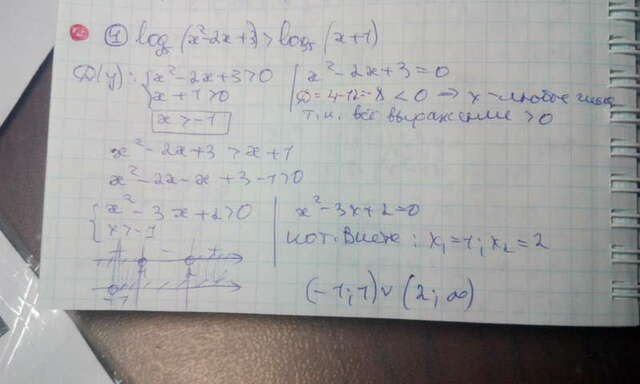 ① log₅(x²-2x+3) > log₅(x+1)
D(y): { x²-2x+3>0
x+1>0
x>-1
x²-2x+3=0
D=4-12=-8<0 ⇒ x-любое число
т.к. всё выражение >0
x²-2x+3>x+1
x²-2x-x+3-1>0
{ x²-3x+2>0
x>-1
x²-3x+2=0
по т. Виета: x₁=1; x₂=2
+ - +
1 2
-1
(-1;1)∪(2;∞)